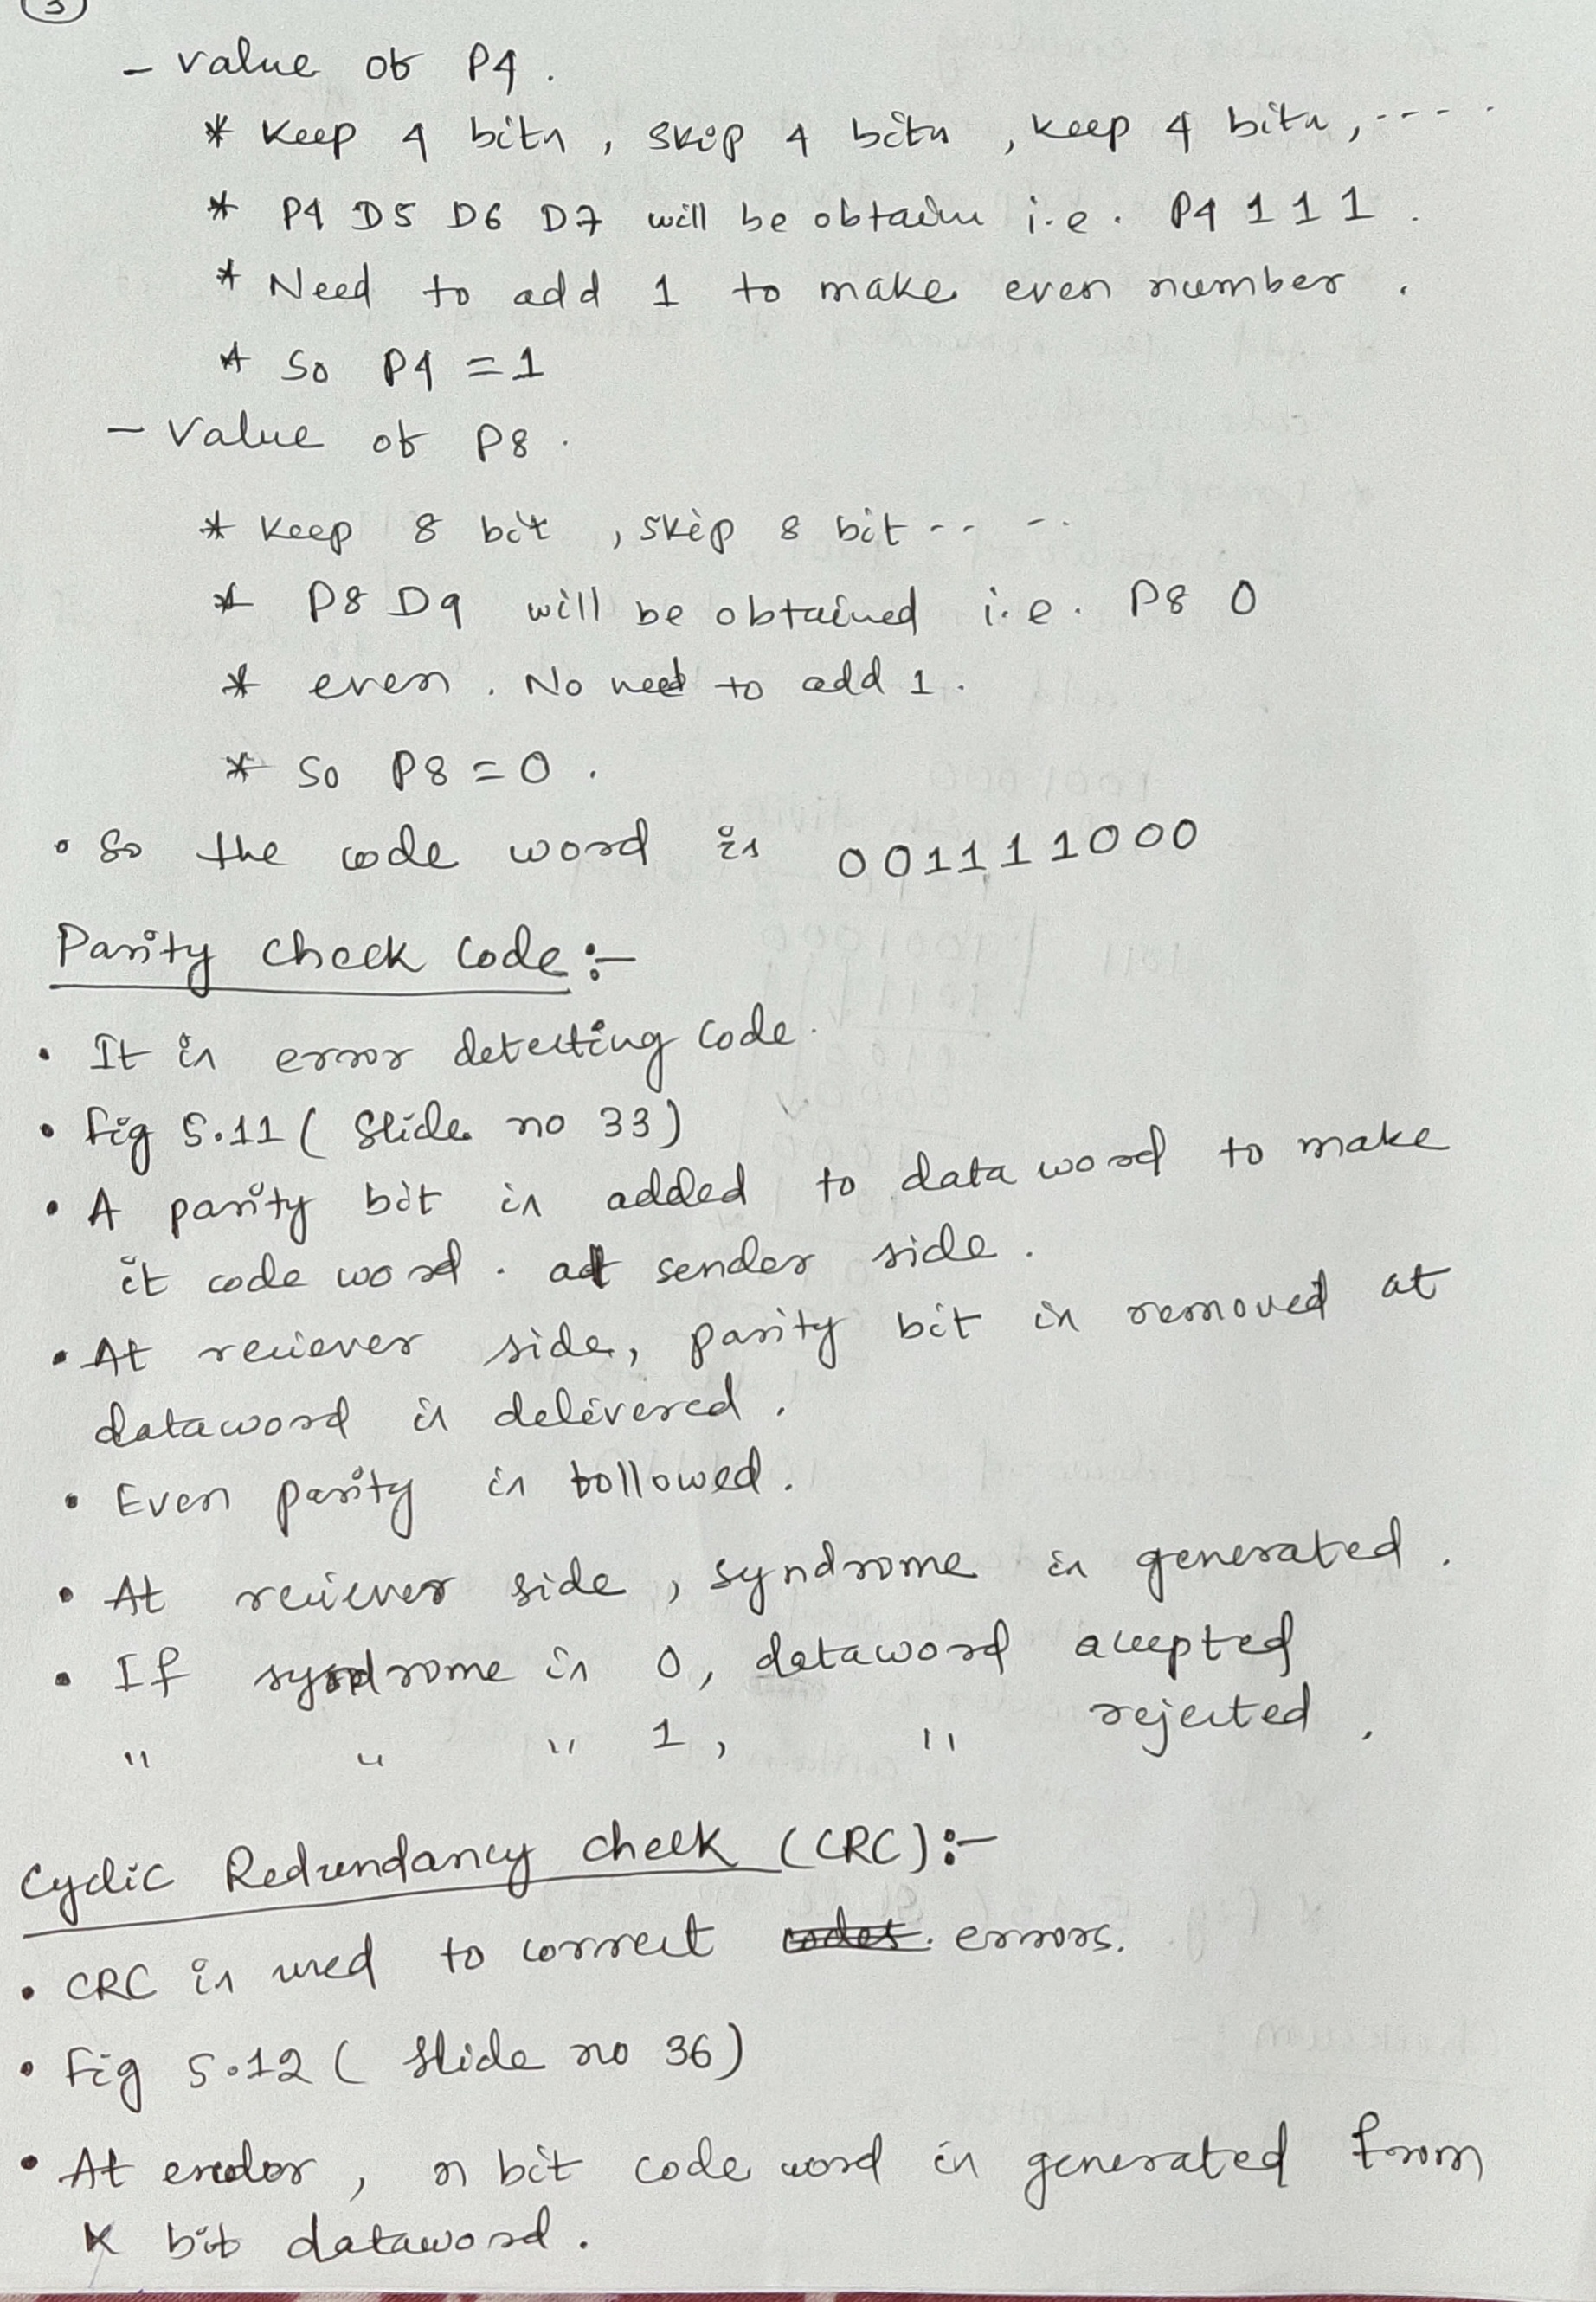 3
- value of P4.
* Keep 4 bits, skip 4 bits, keep 4 bits, ----
* P4 D5 D6 D7 will be obtain i.e. P4 1 1 1.
* Need to add 1 to make even number.
* So P4 = 1
- Value of P8.
* Keep 8 bit, skip 8 bit -- --
* P8 D9 will be obtained i.e. P8 0
* even. No need to add 1.
* So P8 = 0.
• So the code word is 001111000
Parity Check Code :-
• It is error detecting code.
• Fig 5.11 ( Slide no 33)
• A parity bit is added to data word to make
it code word. at sender side.
• At reciever side, parity bit is removed at
dataword is delivered.
• Even parity is followed.
• At reciever side, syndrome is generated.
• If syndrome is 0, dataword accepted
" " " 1, " rejected.
Cyclic Redundancy Check (CRC) :-
• CRC is used to correct codes. errors.
• Fig 5.12 ( Slide no 36)
• At encoder, n bit code word is generated from
K bit dataword.